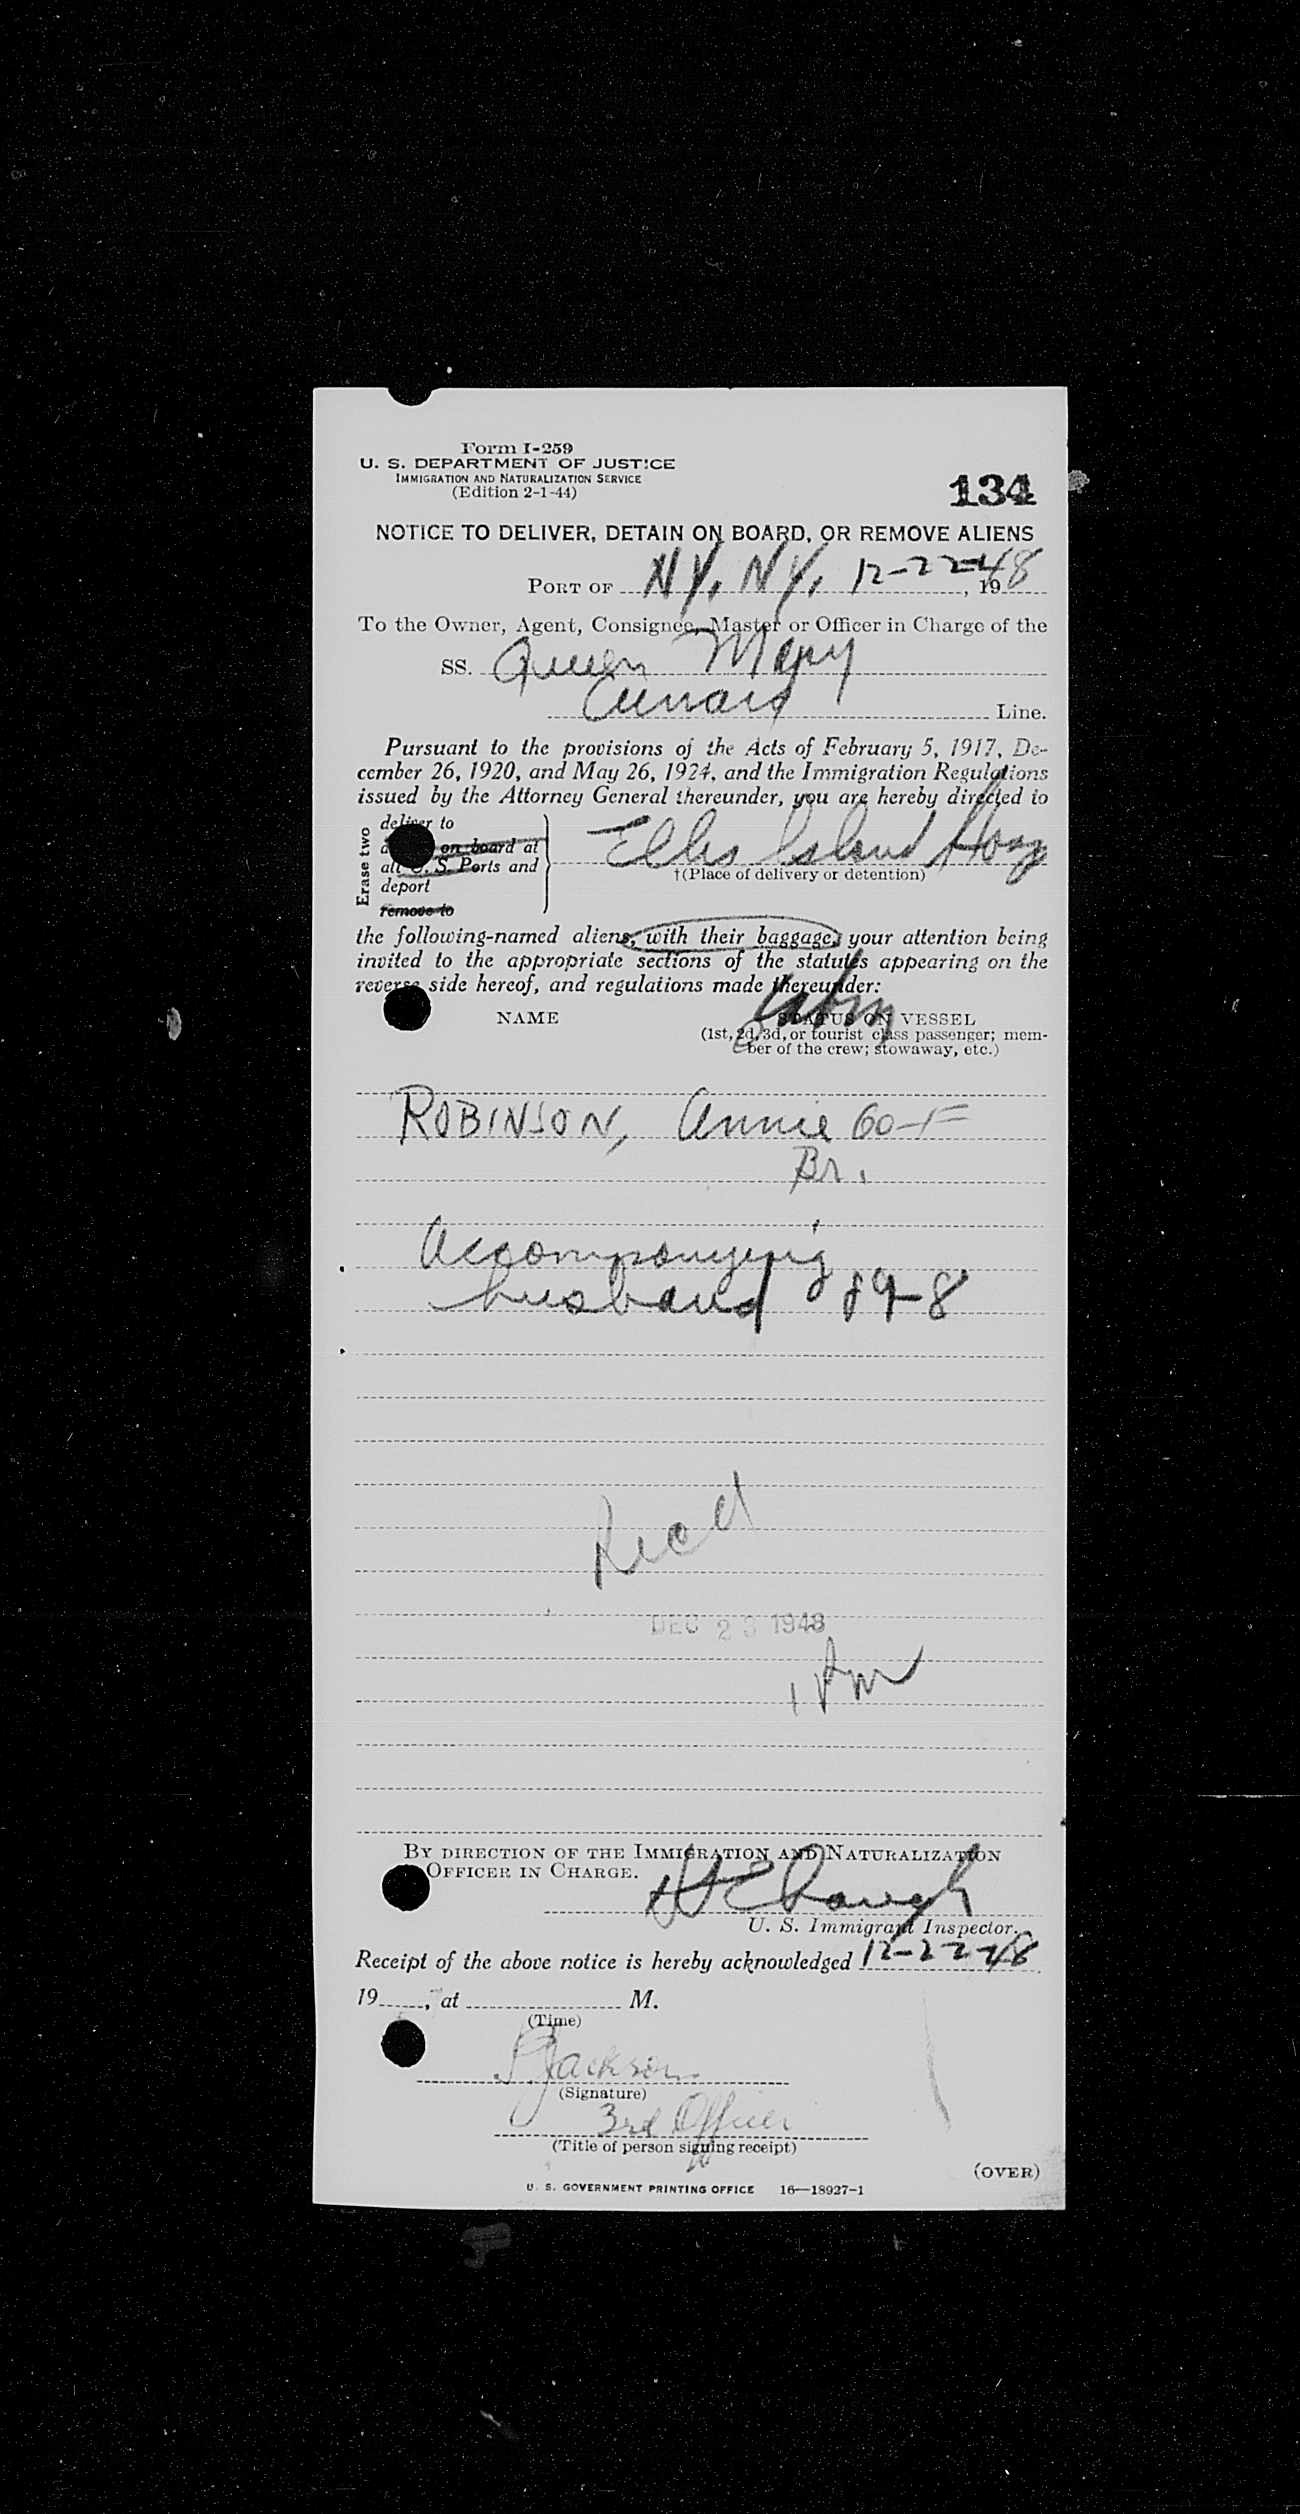 Form I-259
U. S. DEPARTMENT OF JUSTICE
IMMIGRATION AND NATURALIZATION SERVICE
(Edition 2-1-44)
134
NOTICE TO DELIVER, DETAIN ON BOARD, OR REMOVE ALIENS
PORT OF NY, NY, 12-22-48, 19
To the Owner, Agent, Consignee, Master or Officer in Charge of the
SS. Queen Mary
Cunard Line.
Pursuant to the provisions of the Acts of February 5, 1917, De-
cember 26, 1920, and May 26, 1924, and the Immigration Regulations
issued by the Attorney General thereunder, you are hereby directed to
Erase two
deliver to
on board at
all U. S. Ports and
deport
remove to
Ellis Island Hosp
†(Place of delivery or detention)
the following-named aliens, with their baggage, your attention being
invited to the appropriate sections of the statutes appearing on the
reverse side hereof, and regulations made thereunder:
Cabin
NAME STATUS ON VESSEL
(1st, 2d, 3d, or tourist class passenger; mem-
ber of the crew; stowaway, etc.)
ROBINSON, Annie 60-F
Br.
Accompanying
husband 89-8
Recd
DEC 23 1948
1 PM
BY DIRECTION OF THE IMMIGRATION AND NATURALIZATION
OFFICER IN CHARGE.
U. S. Immigrant Inspector.
Receipt of the above notice is hereby acknowledged 12-22-48
19, at M.
(Time)
Jackson
(Signature)
3rd Officer
(Title of person signing receipt)
(OVER)
U. S. GOVERNMENT PRINTING OFFICE 16—18927-1